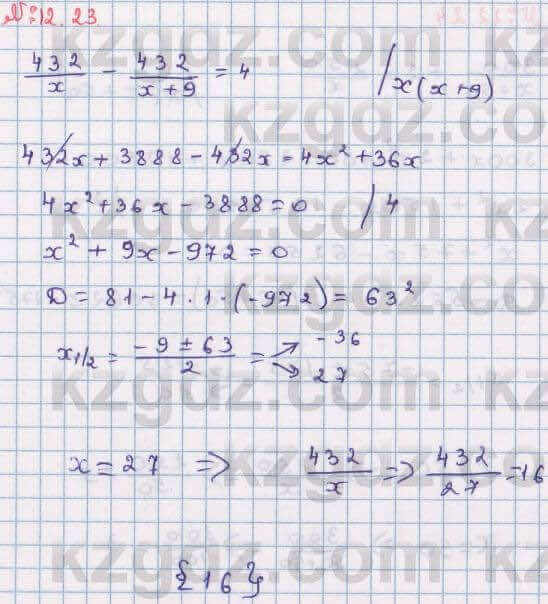 №12.23
432/x - 432/(x+9) = 4 /x(x+9)
432x + 3888 - 432x = 4x² + 36x
4x² + 36x - 3888 = 0 /4
x² + 9x - 972 = 0
D = 81 - 4 · 1 · (-972) = 63²
x1/2 = (-9 ± 63)/2 = -36
27
x = 27 => 432/x => 432/27 = 16
{16}
kzgdz.com